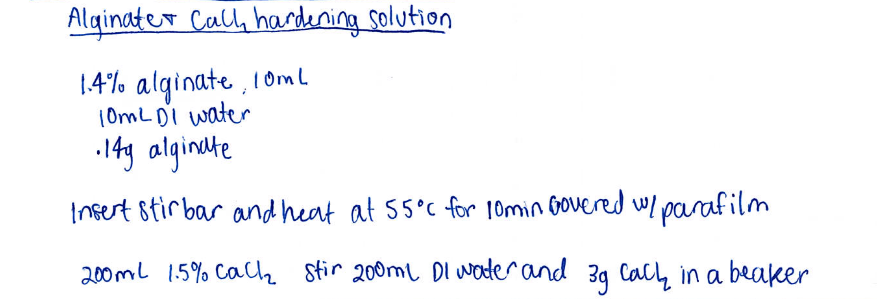 Alginate + CaCl₂ hardening solution
1.4% alginate, 10mL
10mL DI water
.14g alginate
Insert stir bar and heat at 55°C for 10min covered w/ parafilm
200mL 1.5% CaCl₂ stir 200mL DI water and 3g CaCl₂ in a beaker